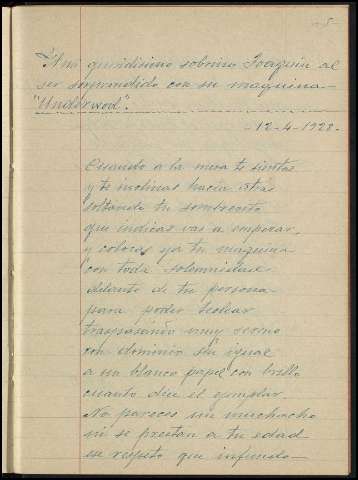 A mi queridisimo sobrino Joaquin al
ser sorprendido con su maquina—
"Underwod".
—12-4-1928.
Cuando a la mesa te sientas
y te inclinas hacia atras
soltando tu sombrerito
que indicas vas a empezar,
y colocas ya tu maquina
con toda solemnidad
delante de tu persona
para poder teclear
traspasando muy sereno
con dominio sin igual
a un blanco papel con brillo
cuanto dice el ejemplar.
No pareces un muchacho
ni se prestan a tu edad
ese respeto que infunde—